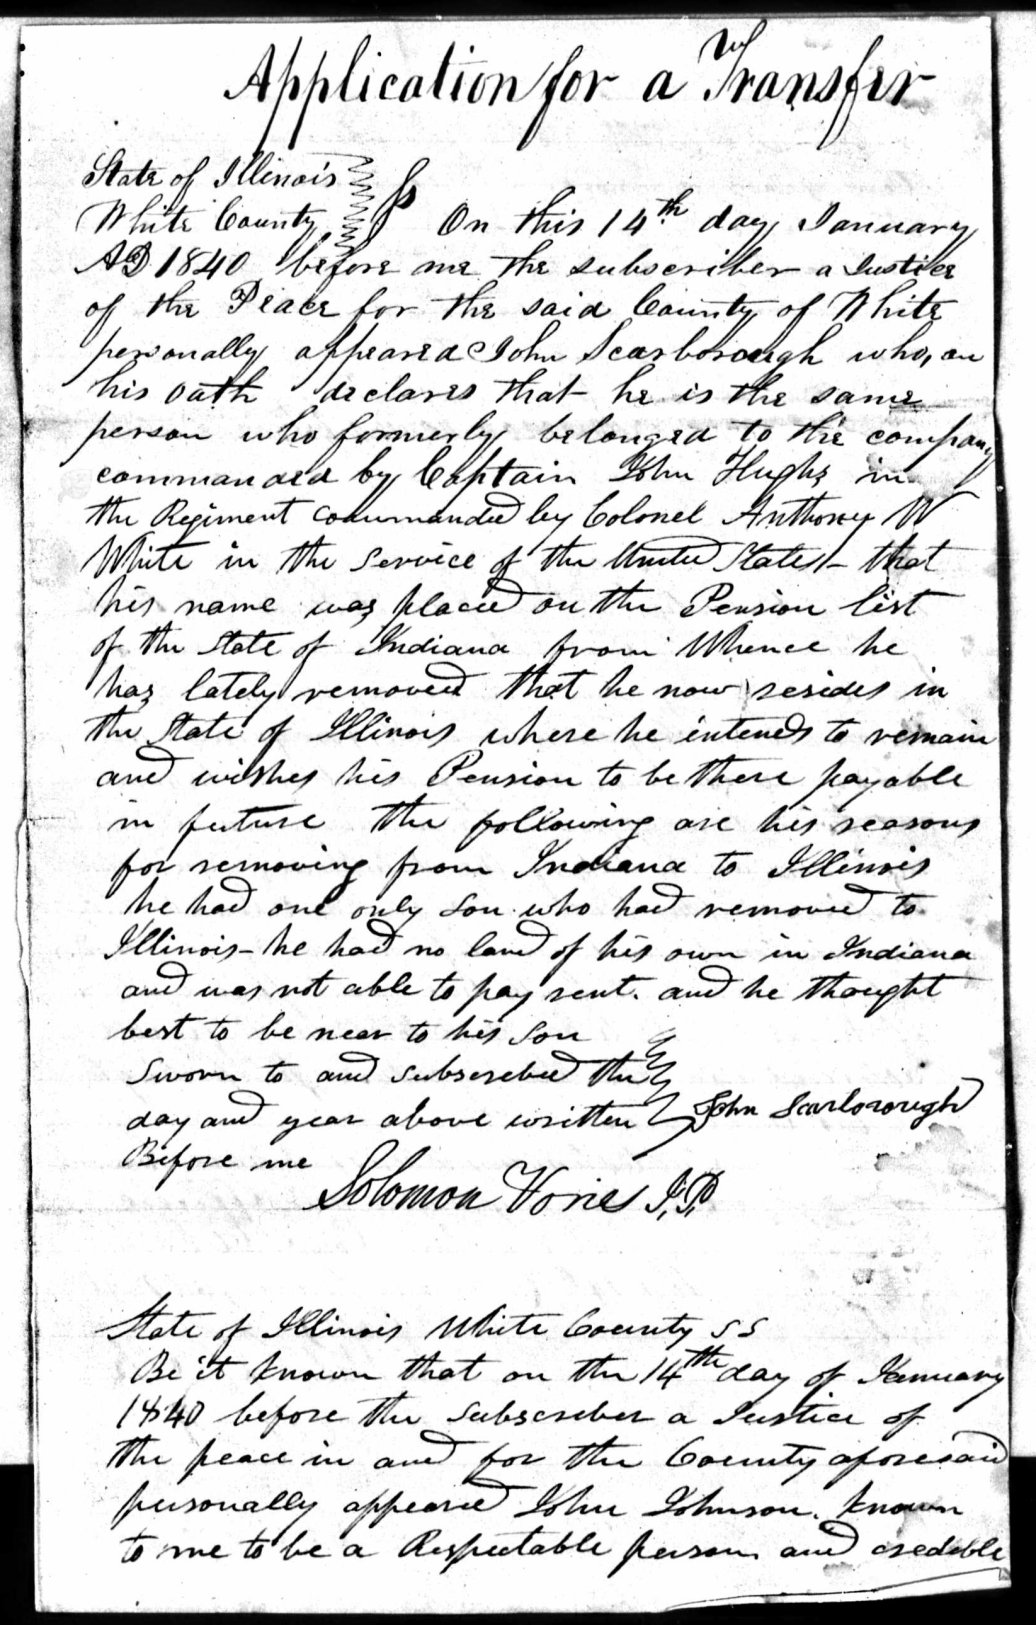 Application for a Transfer
State of Illinois
White County Ss On this 14th day January
AD 1840 before me the subscriber a Justice
of the Peace for the said County of White
personally appeared John Scarborough who, on
his oath declares that he is the same
person who formerly belonged to the company
commanded by Captain John Hughs in
the Regiment commanded by Colonel Anthony W
White in the Service of the United States - that
his name was placed on the Pension list
of the State of Indiana from Whence he
has lately removed that he now resides in
the State of Illinois where he intends to remain
and wishes his Pension to be there payable
in future the following are his reasons
for removing from Indiana to Illinois
he had one only son who had removed to
Illinois - he had no land of his own in Indiana
and was not able to pay rent. and he thought
best to be near to his son
Sworn to and subscrebed the
day and year above written John Scarborough
Before me
Solomon Vories J.P.
State of Illinois White County SS
Be it known that on the 14th day of January
1840 before the subscreber a Justice of
the peace in and for the County aforesaid
personally appeared John Johnson. known
to me to be a Respectable person and credeble